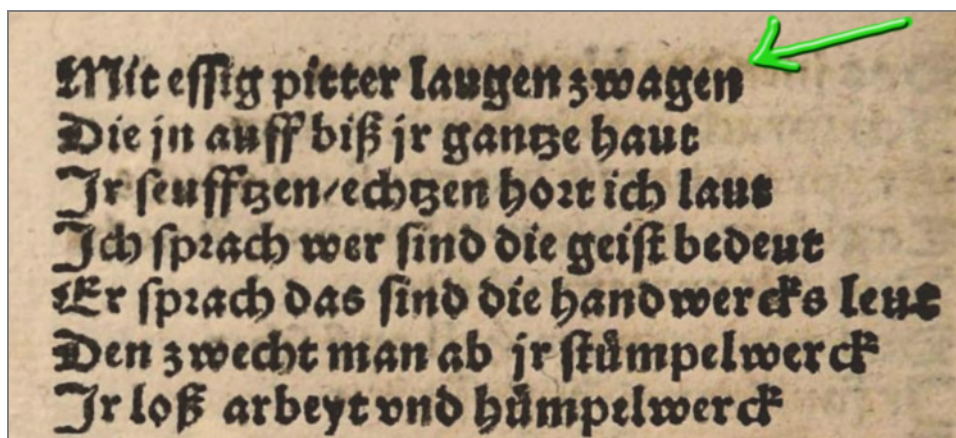 Mit essig pitter laugen zwagen
Die jn auff biß jr gantze haut
Jr seufftzen/echtzen hort ich laut
Jch sprach wer sind die geist bedeut
Er sprach das sind die handwercks leut
Den zwecht man ab jr stůmpelwerck
Jr loß arbeyt vnd hůmpelwerck